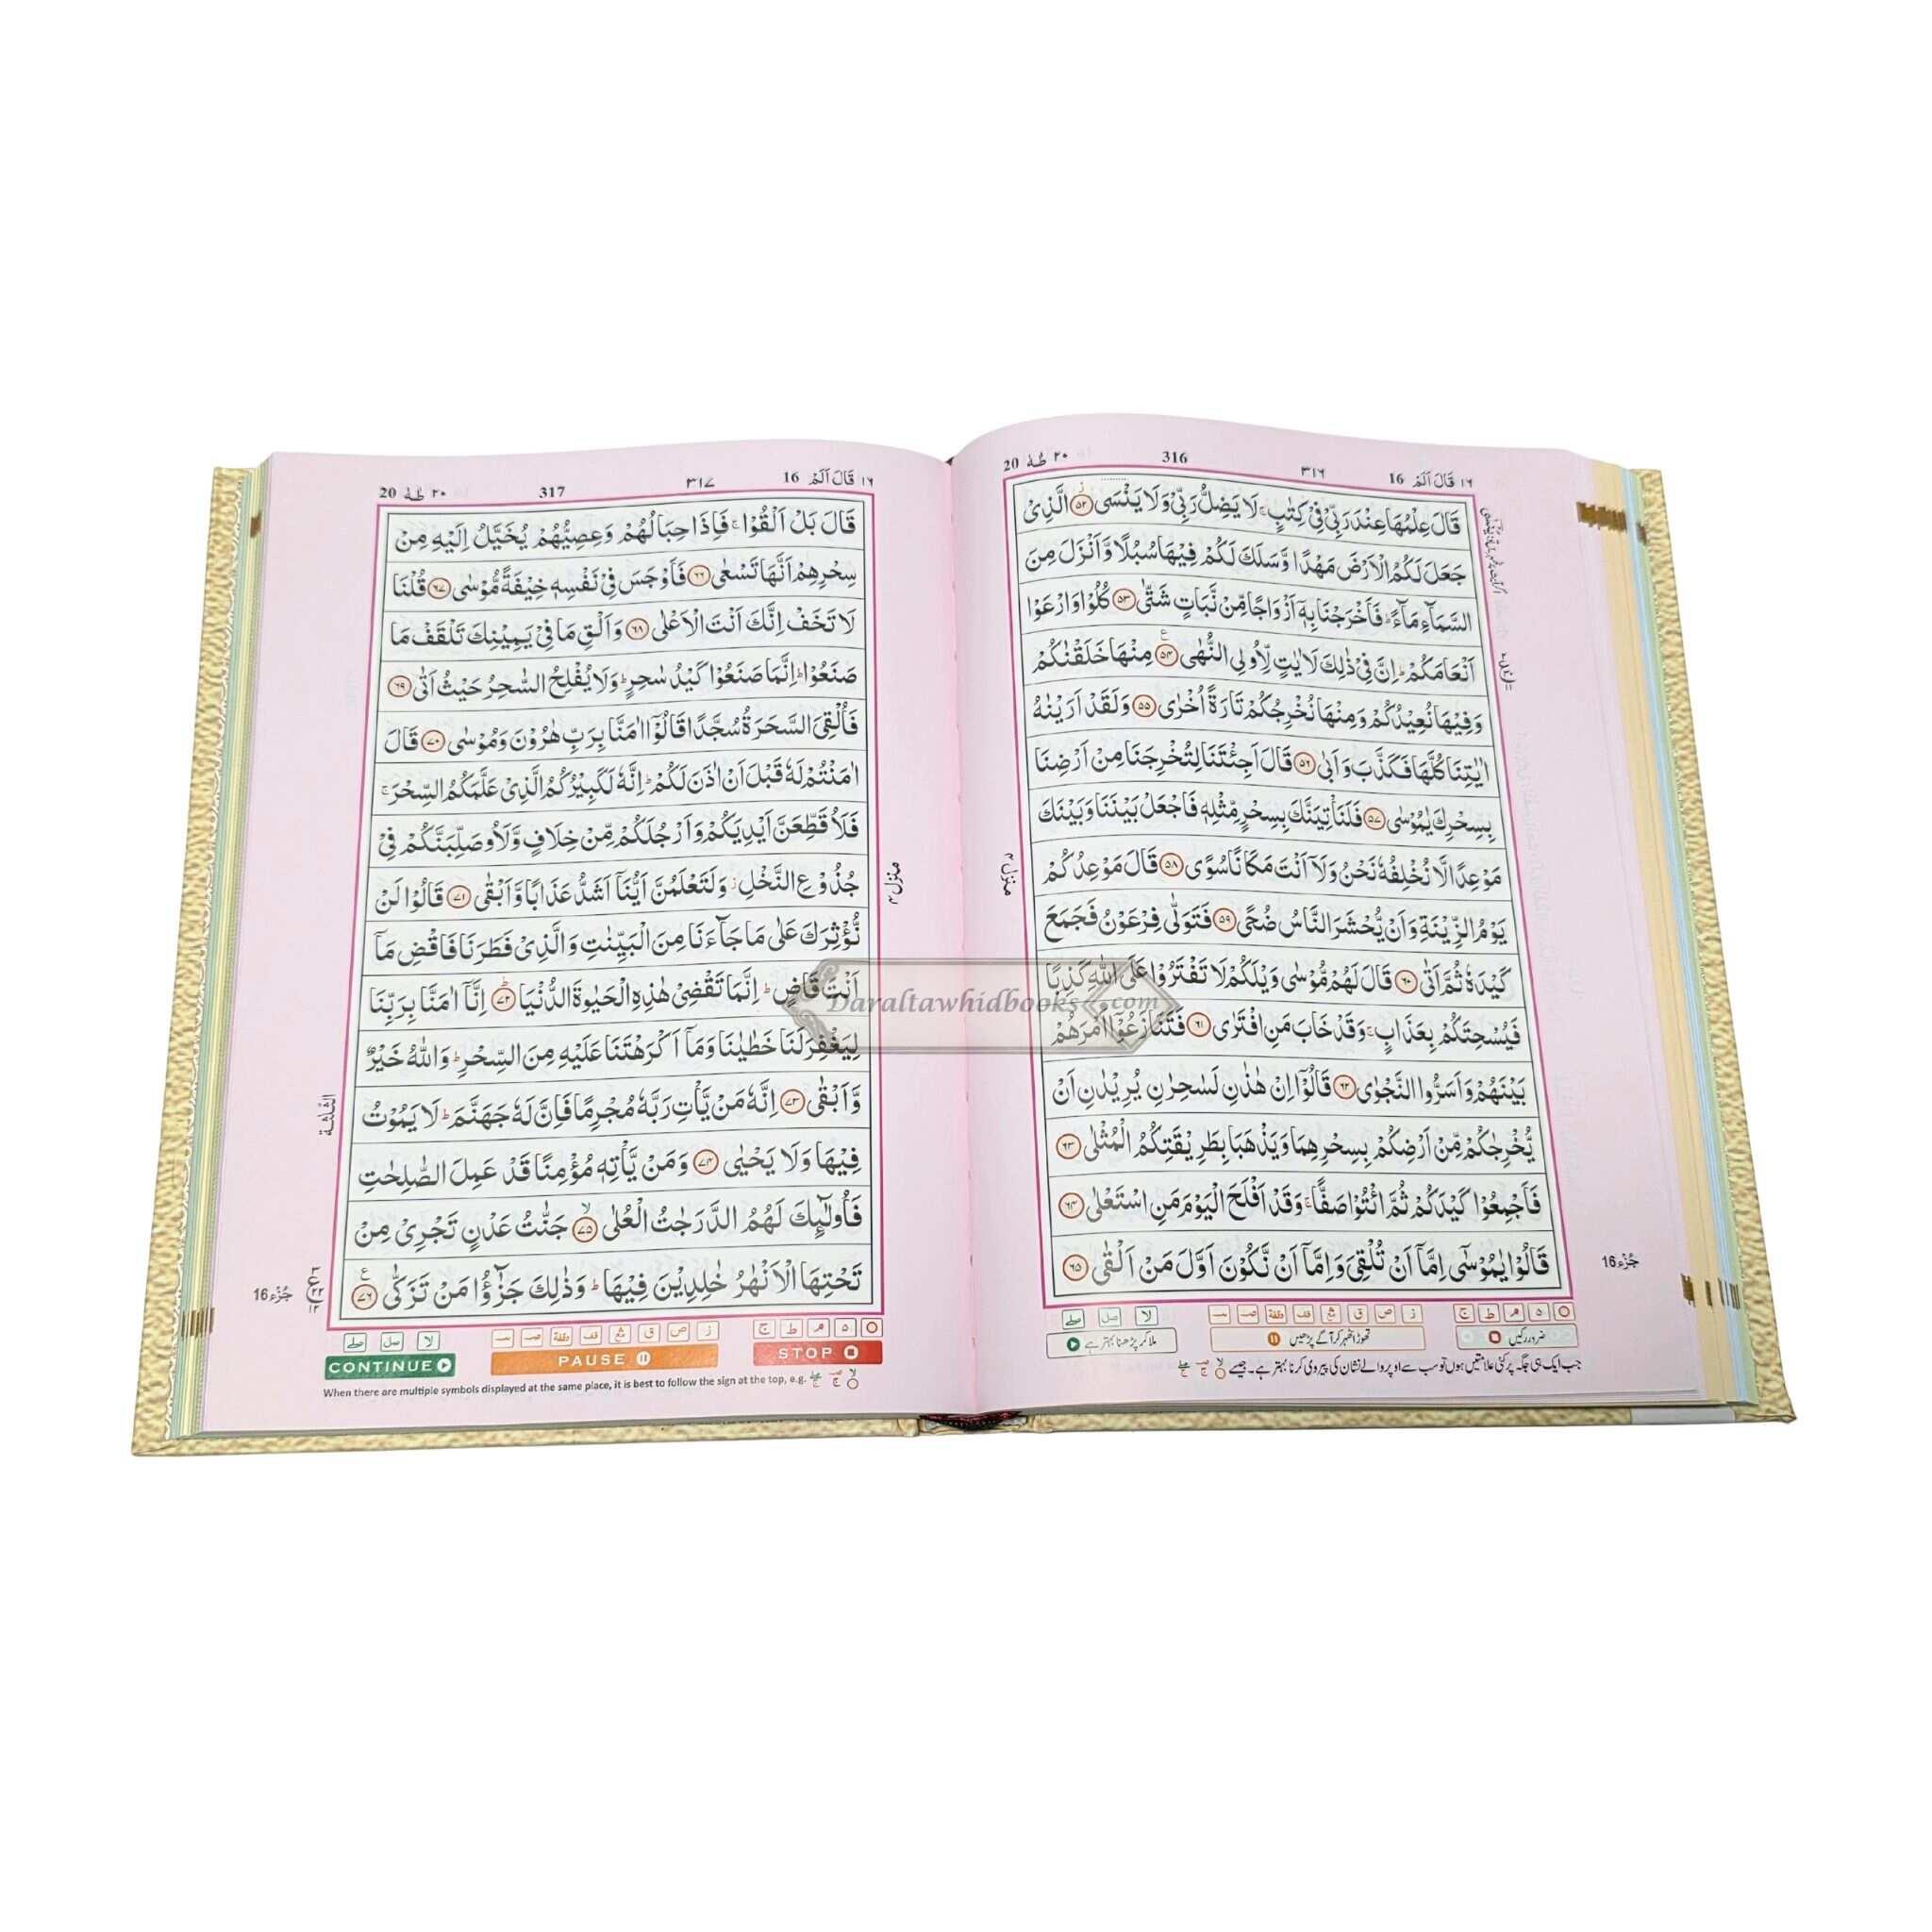 ١٦ قَالَ اَلَمْ 16 ٣١٦ 316 ٢٠ طٰهٰ 20
قَالَ عِلْمُهَا عِنْدَ رَبِّیْ فِیْ كِتٰبٍ ۚ لَا یَضِلُّ رَبِّیْ وَلَا یَنْسَی ﴿٥٢﴾ الَّذِیْ
جَعَلَ لَكُمُ الْاَرْضَ مَهْدًا وَّسَلَكَ لَكُمْ فِیْهَا سُبُلًا وَّاَنْزَلَ مِنَ
السَّمَآءِ مَآءً ؕ فَاَخْرَجْنَا بِهٖۤ اَزْوَاجًا مِّنْ نَّبَاتٍ شَتّٰی ﴿٥٣﴾ كُلُوْا وَارْعَوْا
اَنْعَامَكُمْ ؕ اِنَّ فِیْ ذٰلِكَ لَاٰیٰتٍ لِّاُولِی النُّهٰی ﴿٥٤﴾ مِنْهَا خَلَقْنٰكُمْ
وَفِیْهَا نُعِیْدُكُمْ وَمِنْهَا نُخْرِجُكُمْ تَارَةً اُخْرٰی ﴿٥٥﴾ وَلَقَدْ اَرَیْنٰهُ
اٰیٰتِنَا كُلَّهَا فَكَذَّبَ وَاَبٰی ﴿٥٦﴾ قَالَ اَجِئْتَنَا لِتُخْرِجَنَا مِنْ اَرْضِنَا
بِسِحْرِكَ یٰمُوْسٰی ﴿٥٧﴾ فَلَنَاْتِیَنَّكَ بِسِحْرٍ مِّثْلِهٖ فَاجْعَلْ بَیْنَنَا وَبَیْنَكَ
مَوْعِدًا لَّا نُخْلِفُهٗ نَحْنُ وَلَاۤ اَنْتَ مَكَانًا سُوًی ﴿٥٨﴾ قَالَ مَوْعِدُكُمْ
یَوْمُ الزِّیْنَةِ وَاَنْ یُّحْشَرَ النَّاسُ ضُحًی ﴿٥٩﴾ فَتَوَلّٰی فِرْعَوْنُ فَجَمَعَ
كَیْدَهٗ ثُمَّ اَتٰی ﴿٦٠﴾ قَالَ لَهُمْ مُّوْسٰی وَیْلَكُمْ لَا تَفْتَرُوْا عَلَی اللّٰهِ كَذِبًا
فَیُسْحِتَكُمْ بِعَذَابٍ ۚ وَقَدْ خَابَ مَنِ افْتَرٰی ﴿٦١﴾ فَتَنَازَعُوْۤا اَمْرَهُمْ
بَیْنَهُمْ وَاَسَرُّوا النَّجْوٰی ﴿٦٢﴾ قَالُوْۤا اِنْ هٰذٰنِ لَسٰحِرٰنِ یُرِیْدٰنِ اَنْ
یُّخْرِجٰكُمْ مِّنْ اَرْضِكُمْ بِسِحْرِهِمَا وَیَذْهَبَا بِطَرِیْقَتِكُمُ الْمُثْلٰی ﴿٦٣﴾
فَاَجْمِعُوْا كَیْدَكُمْ ثُمَّ ائْتُوْا صَفًّا ۚ وَقَدْ اَفْلَحَ الْیَوْمَ مَنِ اسْتَعْلٰی ﴿٦٤﴾
قَالُوْا یٰمُوْسٰۤی اِمَّاۤ اَنْ تُلْقِیَ وَاِمَّاۤ اَنْ نَّكُوْنَ اَوَّلَ مَنْ اَلْقٰی ﴿٦٥﴾
جُزْء 16
منزل ٤
ضرور رکیں
تھوڑا ٹھہر کر آگے پڑھیں
ملا کر پڑھنا بہتر ہے
جب ایک ہی جگہ پر کئی علامتیں ہوں تو سب سے اوپر والے نشان کی پیروی کرنا بہتر ہے۔ جیسے
١٦ قَالَ اَلَمْ 16 ٣١٧ 317 ٢٠ طٰهٰ 20
قَالَ بَلْ اَلْقُوْا ۚ فَاِذَا حِبَالُهُمْ وَعِصِیُّهُمْ یُخَیَّلُ اِلَیْهِ مِنْ
سِحْرِهِمْ اَنَّهَا تَسْعٰی ﴿٦٦﴾ فَاَوْجَسَ فِیْ نَفْسِهٖ خِیْفَةً مُّوْسٰی ﴿٦٧﴾ قُلْنَا
لَا تَخَفْ اِنَّكَ اَنْتَ الْاَعْلٰی ﴿٦٨﴾ وَاَلْقِ مَا فِیْ یَمِیْنِكَ تَلْقَفْ مَا
صَنَعُوْا ؕ اِنَّمَا صَنَعُوْا كَیْدُ سٰحِرٍ ؕ وَلَا یُفْلِحُ السّٰحِرُ حَیْثُ اَتٰی ﴿٦٩﴾
فَاُلْقِیَ السَّحَرَةُ سُجَّدًا قَالُوْۤا اٰمَنَّا بِرَبِّ هٰرُوْنَ وَمُوْسٰی ﴿٧٠﴾ قَالَ
اٰمَنْتُمْ لَهٗ قَبْلَ اَنْ اٰذَنَ لَكُمْ ؕ اِنَّهٗ لَكَبِیْرُكُمُ الَّذِیْ عَلَّمَكُمُ السِّحْرَ ۚ
فَلَاُقَطِّعَنَّ اَیْدِیَكُمْ وَاَرْجُلَكُمْ مِّنْ خِلَافٍ وَّلَاُوصَلِّبَنَّكُمْ فِیْ
جُذُوْعِ النَّخْلِ ؗ وَلَتَعْلَمُنَّ اَیُّنَاۤ اَشَدُّ عَذَابًا وَّاَبْقٰی ﴿٧١﴾ قَالُوْا لَنْ
نُّؤْثِرَكَ عَلٰی مَا جَآءَنَا مِنَ الْبَیِّنٰتِ وَالَّذِیْ فَطَرَنَا فَاقْضِ مَاۤ
اَنْتَ قَاضٍ ؕ اِنَّمَا تَقْضِیْ هٰذِهِ الْحَیٰوةَ الدُّنْیَا ﴿٧٢﴾ اِنَّاۤ اٰمَنَّا بِرَبِّنَا
لِیَغْفِرَ لَنَا خَطٰیٰنَا وَمَاۤ اَكْرَهْتَنَا عَلَیْهِ مِنَ السِّحْرِ ؕ وَاللّٰهُ خَیْرٌ
وَّاَبْقٰی ﴿٧٣﴾ اِنَّهٗ مَنْ یَّاْتِ رَبَّهٗ مُجْرِمًا فَاِنَّ لَهٗ جَهَنَّمَ ؕ لَا یَمُوْتُ
فِیْهَا وَلَا یَحْیٰی ﴿٧٤﴾ وَمَنْ یَّاْتِهٖ مُؤْمِنًا قَدْ عَمِلَ الصّٰلِحٰتِ
فَاُولٰٓئِكَ لَهُمُ الدَّرَجٰتُ الْعُلٰی ﴿٧٥﴾ جَنّٰتُ عَدْنٍ تَجْرِیْ مِنْ
تَحْتِهَا الْاَنْهٰرُ خٰلِدِیْنَ فِیْهَا ؕ وَذٰلِكَ جَزٰٓؤُا مَنْ تَزَكّٰی ﴿٧٦﴾
الثلثة
جُزْء 16
منزل ٤
STOP
PAUSE
CONTINUE
When there are multiple symbols displayed at the same place, it is best to follow the sign at the top, e.g.
Daraltawhidbooks.com